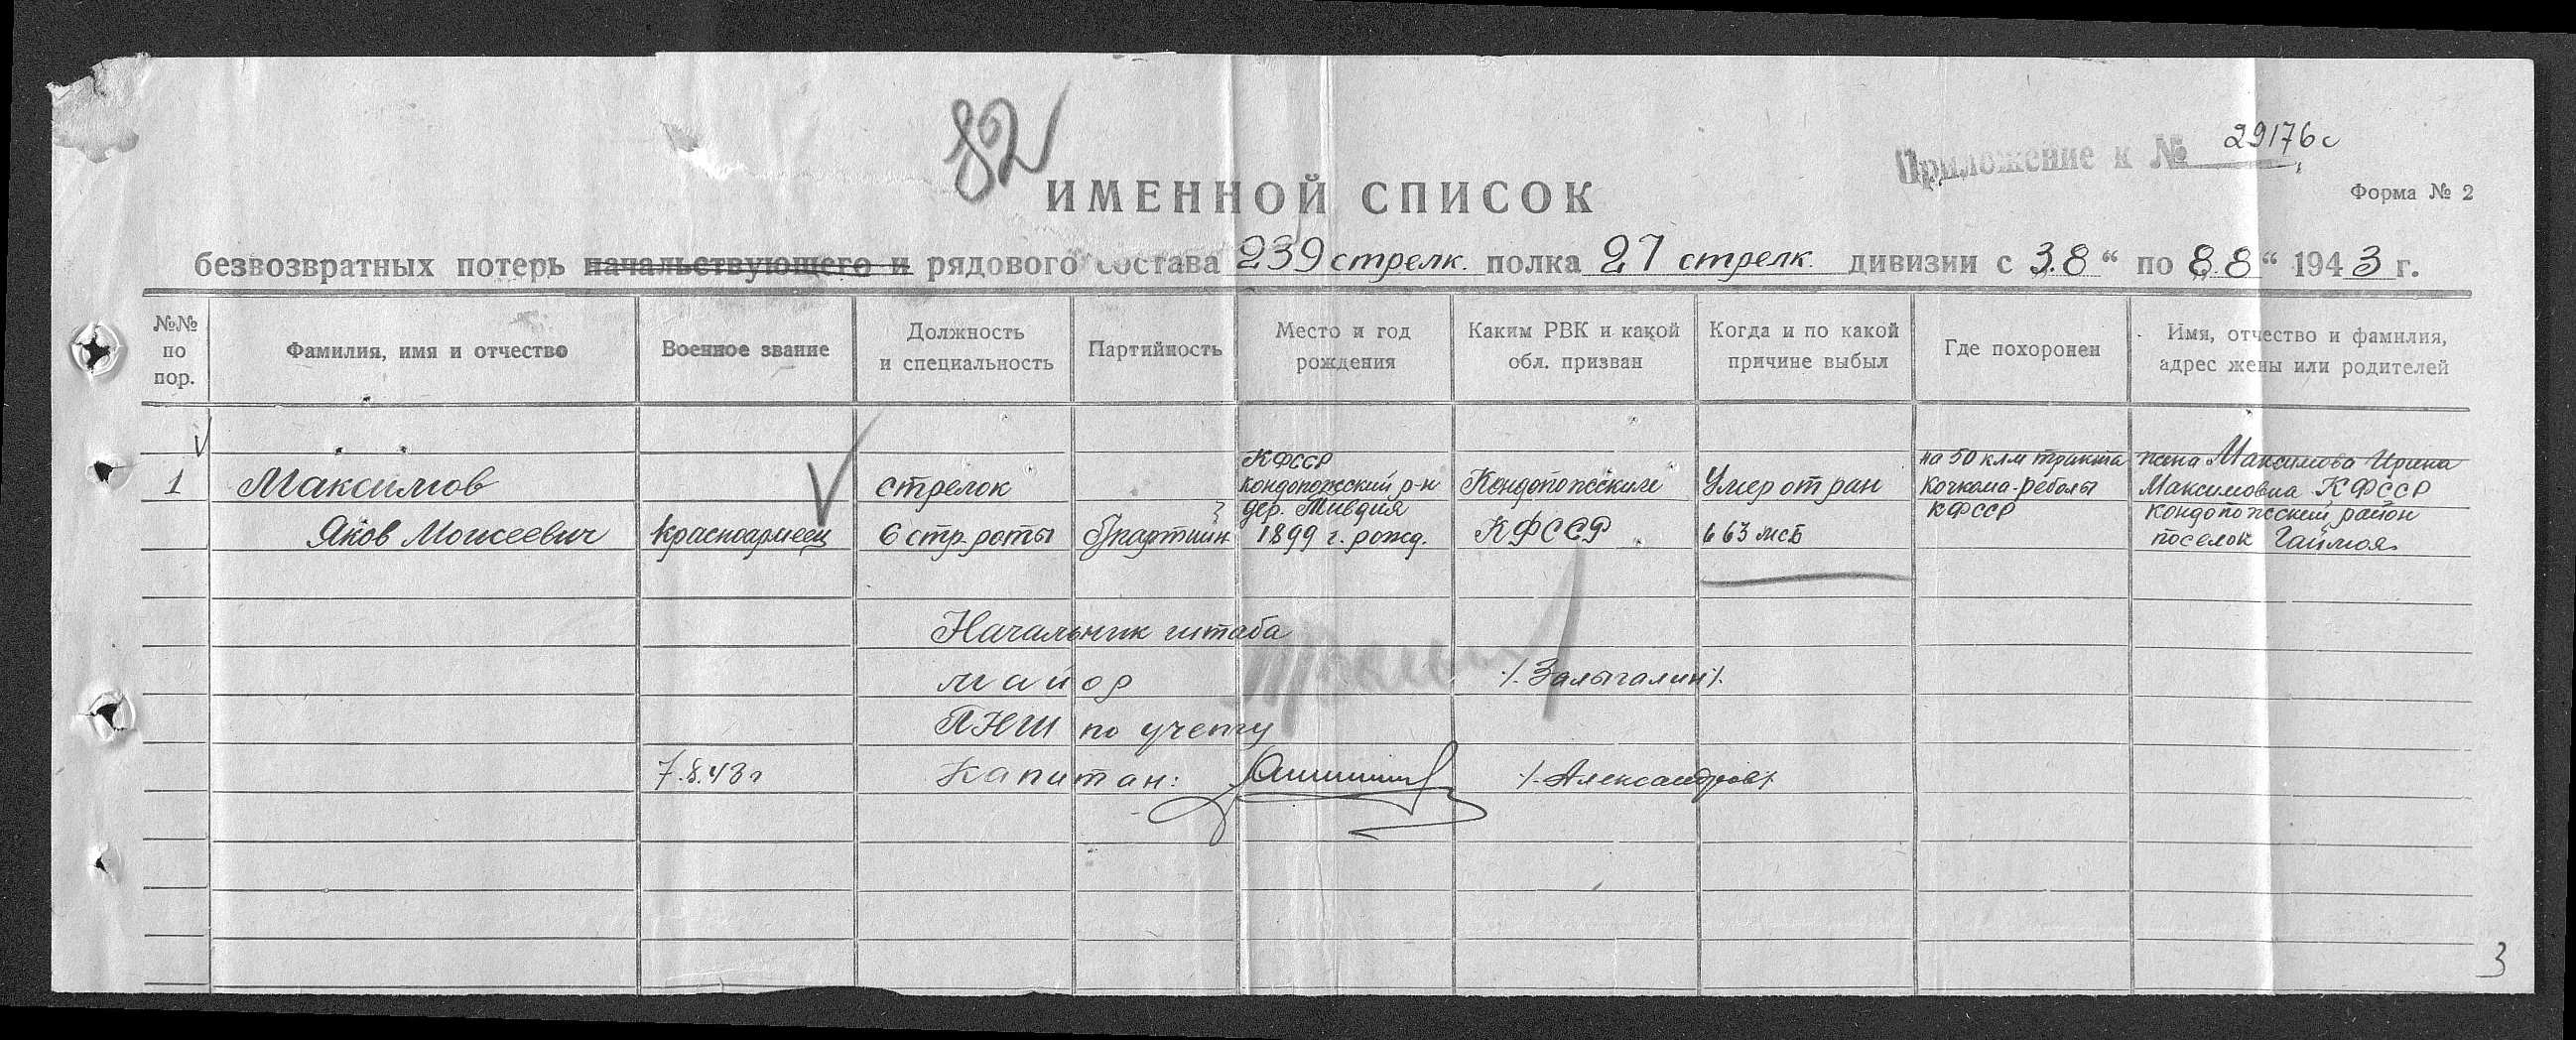 82
Приложение к № 29176с
ИМЕННОЙ СПИСОК
Форма № 2
безвозвратных потерь начальствующего и рядового состава 239 стрелк. полка 27 стрелк. дивизии с 3.8 " по 8.8 " 1943 г.
№№ по пор.
Фамилия, имя и отчество
Военное звание
Должность и специальность
Партийность
Место и год рождения
Каким РВК и какой обл. призван
Когда и по какой причине выбыл
Где похоронен
Имя, отчество и фамилия, адрес жены или родителей
1
Максимов
Яков Моисеевич
красноармеец
стрелок
6 стр. роты
б/партийн
КФССР
Кондопожский р-н
дер. Тивдия
1899 г. рожд.
Кондопожским
КФССР
Умер от ран
в 63 мсб
на 50 клм тракта
Кочкома-Реболы
КФССР
жена Максимова Ирина
Максимовна КФССР
Кондопожский район
поселок Гаймоя
Начальник штаба
майор
/. Залыгалин /.
ПНШ по учету
7.8.43 г
Капитан:
/. Александров /.
3